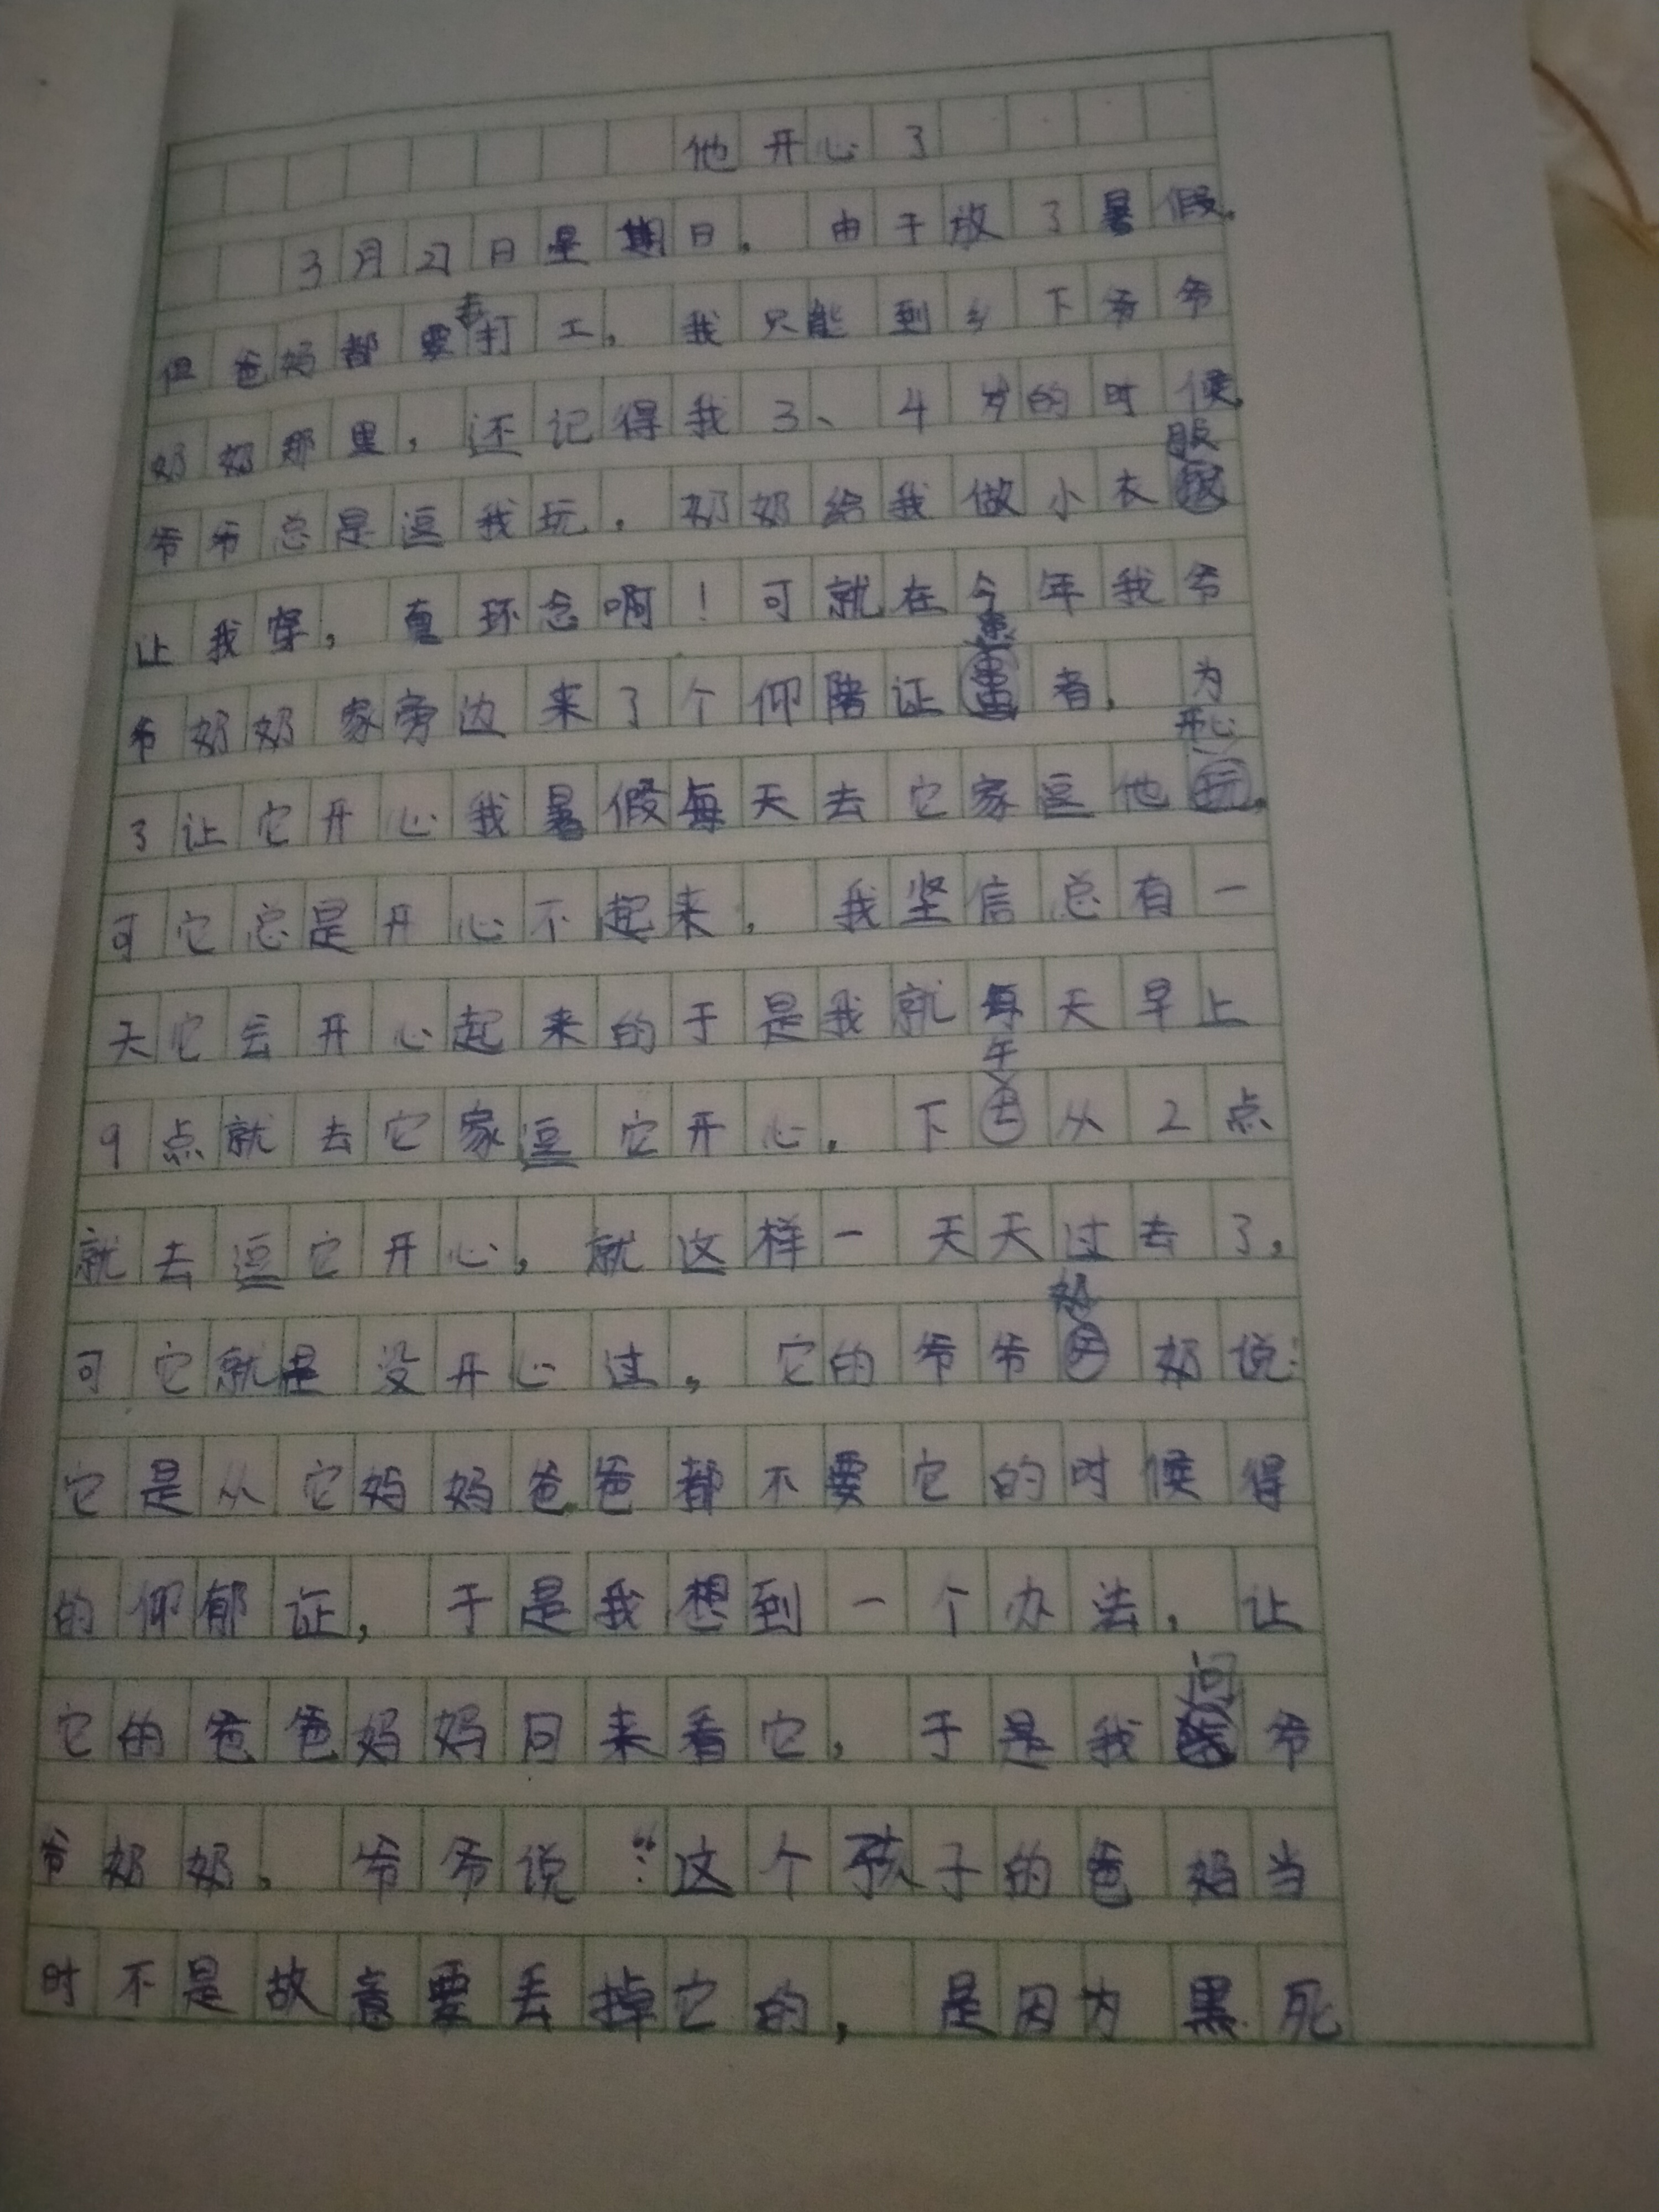 他开心了
3月27日星期日。由于放了暑假。
但爸妈都要去打工，我只能到乡下爷爷
奶奶那里，还记得我3、4岁的时候，
爷爷总是逗我玩，奶奶给我做小衣服
让我穿，真环念啊！可就在今年我爷
爷奶奶家旁边来了个仰陪证患者，为
了让它开心我暑假每天去它家逗他开心。
可它总是开心不起来，我坚信总有一
天它会开心起来的于是我就每天早上
9点就去它家逗它开心，下午从2点
就去逗它开心，就这样一天天过去了，
可它就是没开心过，它的爷爷奶奶说：
它是从它妈妈爸爸都不要它的时候得
的仰郁证，于是我想到一个办法，让
它的爸爸妈妈回来看它，于是我问爷
爷奶奶。爷爷说：“这个孩子的爸妈当
时不是故意要丢掉它的，是因为黑死